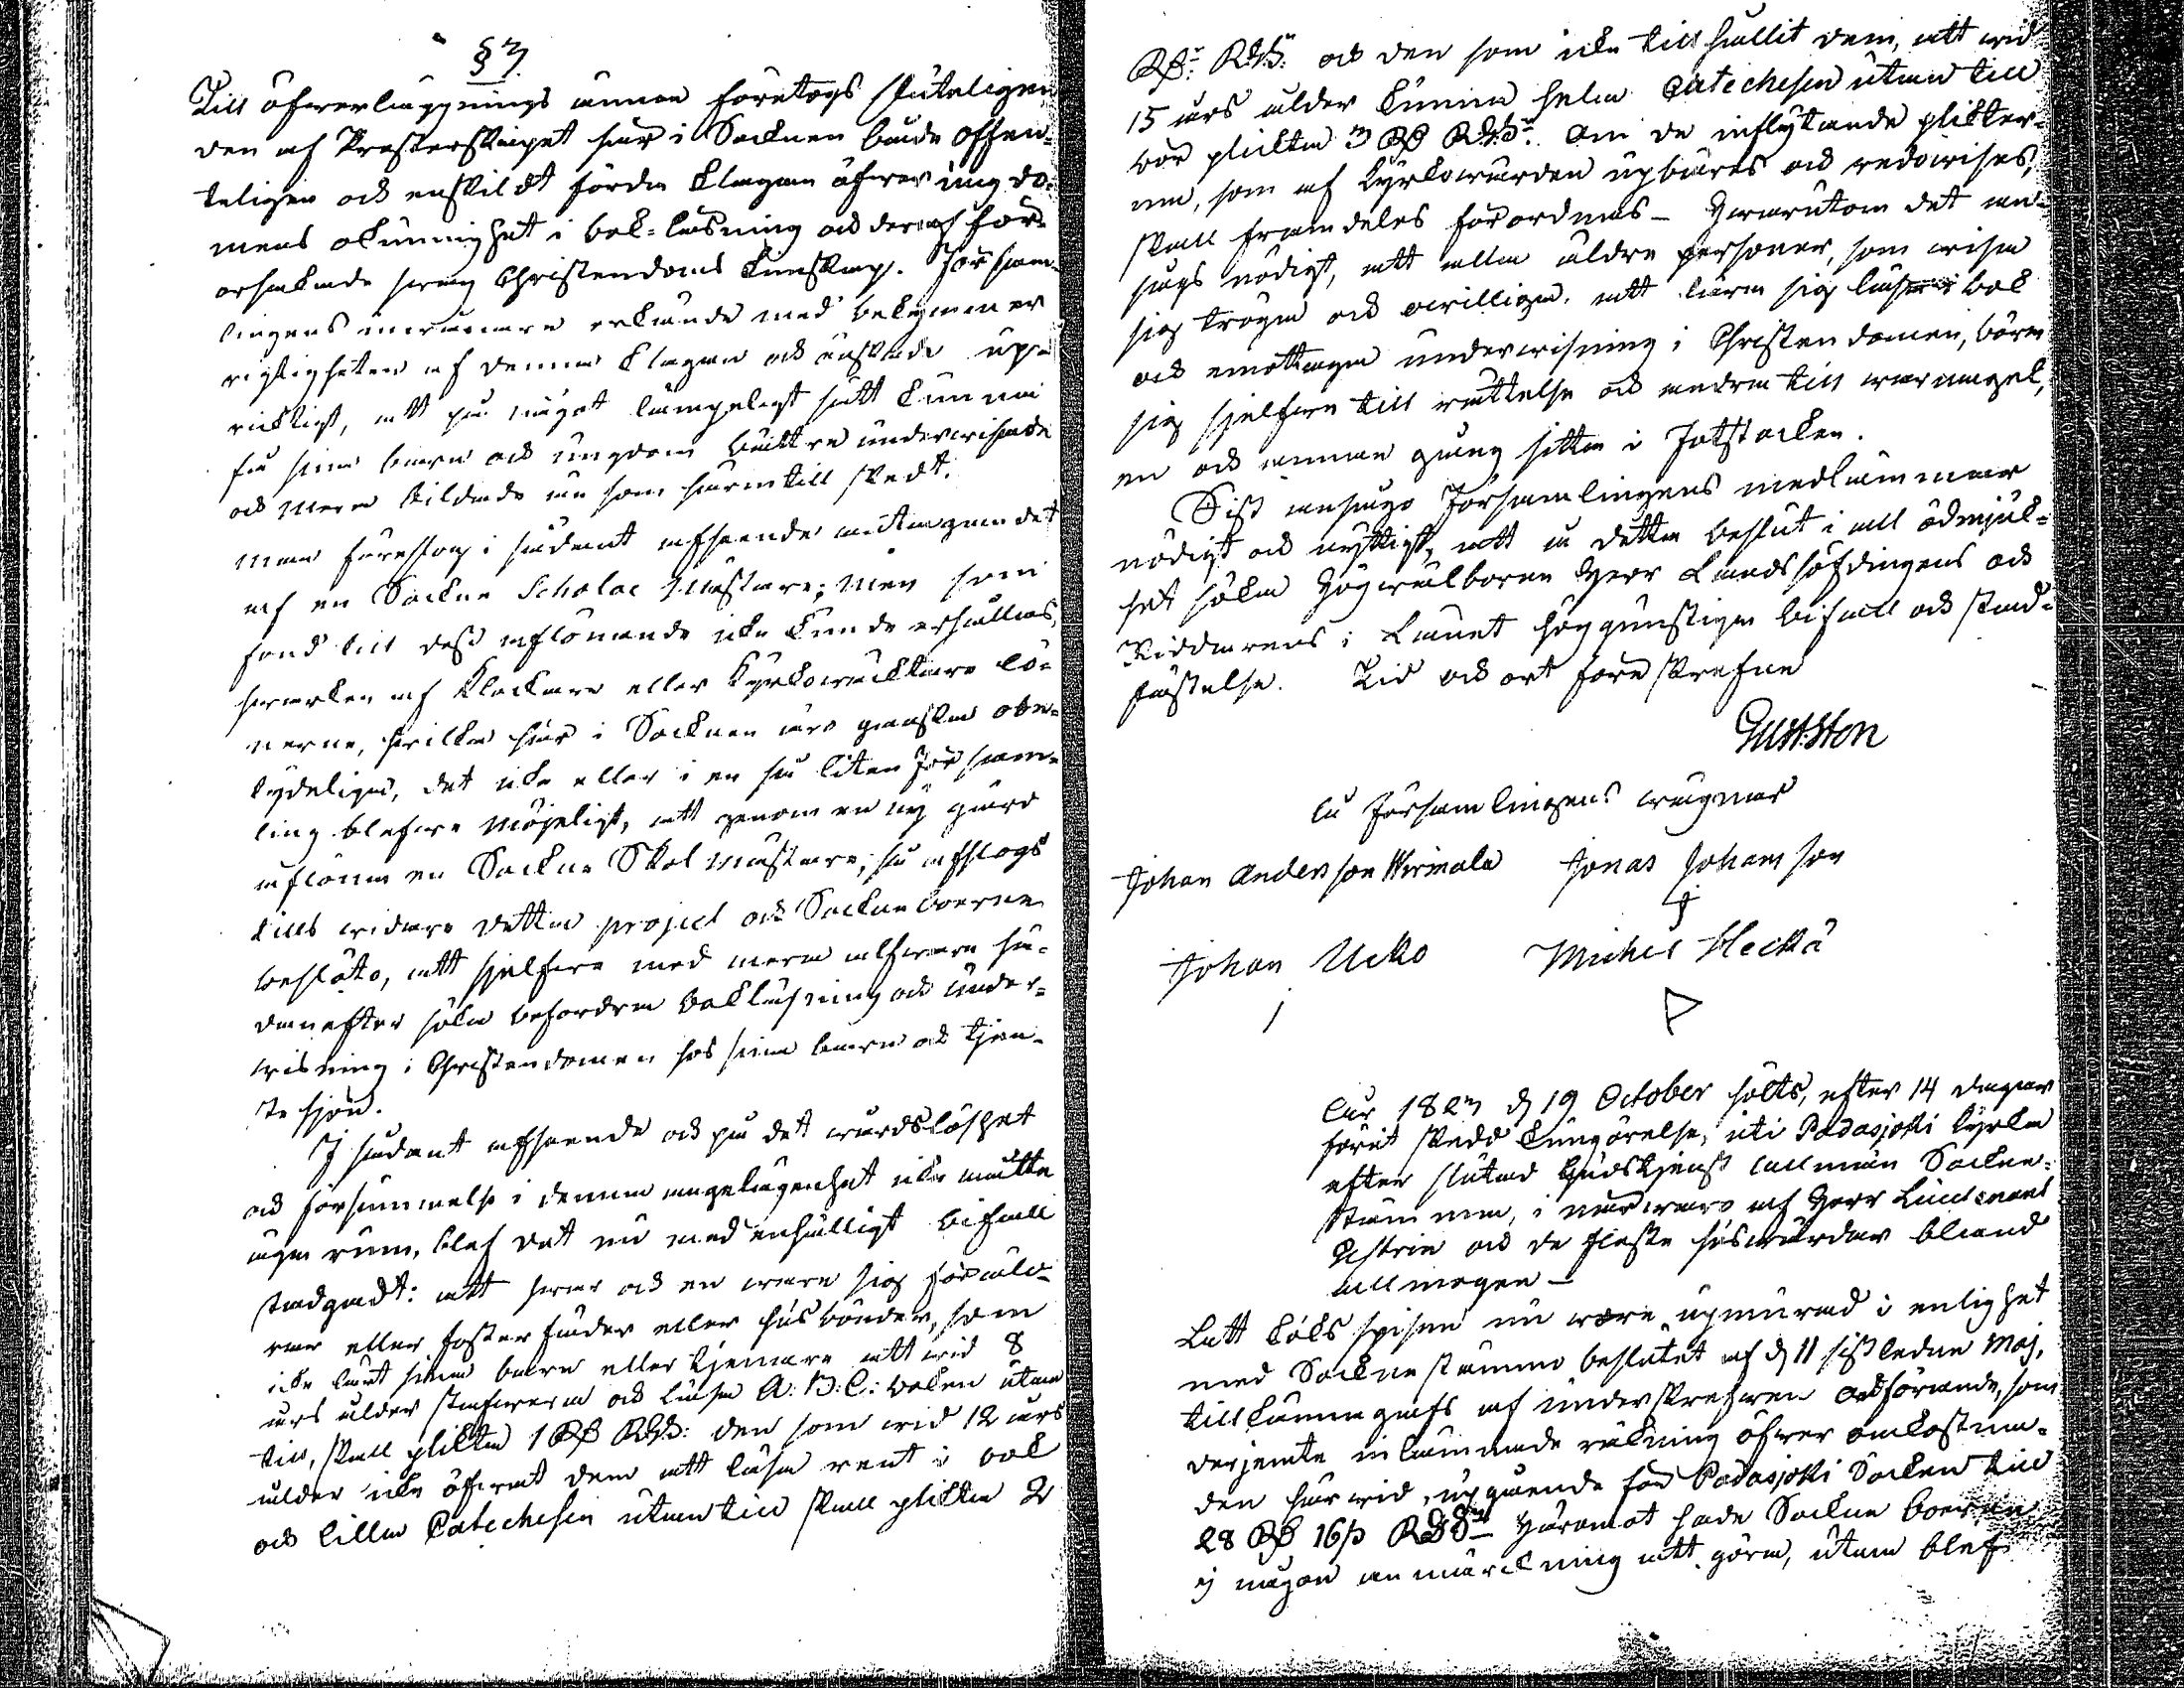 § 3.
Till öfverläggnings ämne företogs sluteligen
den af Presterskapet här i Socknen både offen-
teligen och enskildt förda klagan öfver ungdo-
mens okunnighet i bok-läsning och deraf för-
orsakade swag Christendoms kunskap. Försam-
lingens inwånare erkände med bekymmer
rigtigheten af denna klagan och önskade upp-
ricktigt, att på något lämpeligt sätt kunna
få sina barn och ungdom bättre underwisade
och mera bildade än som härintill skedt.
Man föreslog i sådant afseende antagandet
af en Sockne Scholae Mästare; men som
fond till dess aflönande icke kunde erhållas,
hwarken af Klockare eller Kyrkowäcktare lö-
nerne, hwilka här i Socknen äro ganska obe-
tydeliga, det icke eller i en så liten Försam-
ling blefwe möjeligt, att genom en ny gärd
aflöna en Sockne Skol Mästare; så afslogs
tills widare detta project och Sockneboerne
beslöto, att sjelfwe med mera alfware hä-
danefter söka befordra bokläsning och under-
wisning i Christendomen hos sina barn och tjen-
stehjon.
I sådant afseende och på det wårdslöshet
och försummelse i denna angelägenhet icke måtte
äga rum, blef det nu med enhälligt bifall
stadgadt: att hwar och en ware sig föräld-
rar eller fosterfäder eller husbönder, som
icke lärt sina barn eller tjenare att wid 8
års ålder stafwa och läsa A:B:C: boken utan
till, skall plikta 1 Rß RGS: den som wid 12 års
ålder icke öfwat dem att läsa rent i bok
och lilla Catechesen utantill skall plikta 2
Rß: RGS: och den som icke tillhållit dem, att wid
15 års ålder kunna hela Catechesen utantill
bör plikta 3 Rß RGS: Om de inflytande plikter-
na, som af Kyrkowärden upbäres och redowises,
skall framdeles förordnas - Hwarutom det an-
sågs nödigt, att alla äldre personer, som wisa
sig tröga och owilliga, att lära sig läsa i bok
och emottaga underwisning i Christendomen, böra
sig sjelfwe till rättelse och androm till warnagel,
en och annan gång sitta i Fotstocken.
Sist ansågo Församlingens medlemmar
nödigt och nyttigt, att å detta beslut i all ödmjuk-
het söka Högwälborne Herr Landshöfdingens och
Riddarens i Länet höggunstiga bifall och stad-
fästelse. Tid och ort föreskrefne
å Församlingens wägnar
Johan Andersson Wirmala Jonas Johansson
Johan Ucko Michel Heckä
År 1823 d 19 October hölts, efter 14 dagar
förut skedd kungörelse, uti Padasjoki kyrka
efter slutad Gudstjenst allmän Sockne-
stämma, i närwaro af Herr Lieutenant
och de fleste husbönder bland
allmogen -
Att köks spisen nu wore upmurad i enlighet
med Socknestämmo beslutet af d 11 sistledne Maj,
tillkännagafs af underskrefwen ordförande, som
derjemte inlämnade räkning öfwer omkostna-
den härwid, upgående för Padasjoki Socken till
28 Rß 16 ß RGS: Häremot hade Sockne boerne
ej någon anmärkning att göra, utan blef